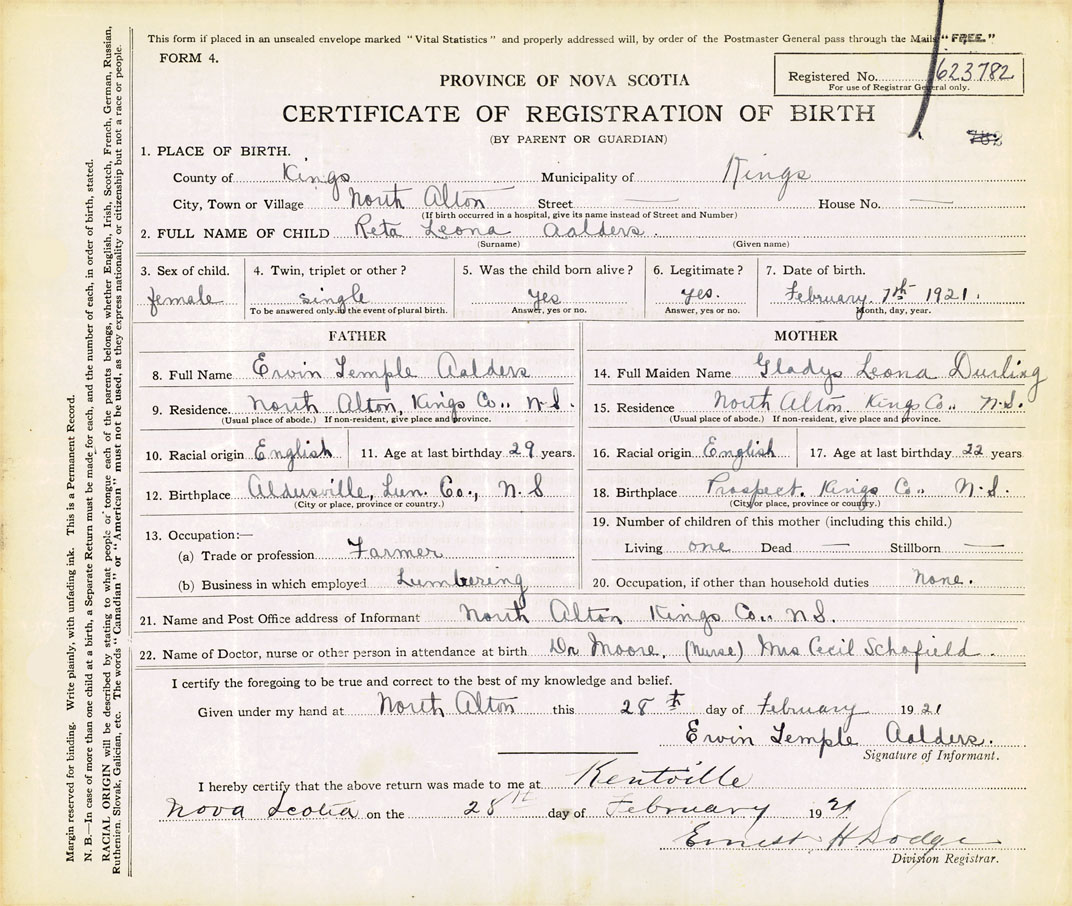 This form if placed in an unsealed envelope marked "Vital Statistics" and properly addressed will, by order of the Postmaster General pass through the Mails "FREE."
FORM 4.
PROVINCE OF NOVA SCOTIA
Registered No. 623782
For use of Registrar General only.
CERTIFICATE OF REGISTRATION OF BIRTH
(BY PARENT OR GUARDIAN)
1. PLACE OF BIRTH.
County of Kings Municipality of Kings
City, Town or Village North Alton Street — House No. —
(If birth occurred in a hospital, give its name instead of Street and Number)
2. FULL NAME OF CHILD Reta Leona Aalders.
(Surname) (Given name)
3. Sex of child. 4. Twin, triplet or other? 5. Was the child born alive? 6. Legitimate? 7. Date of birth.
female single yes yes. February 7th 1921.
To be answered only in the event of plural birth. Answer, yes or no. Answer, yes or no. Month, day, year.
FATHER MOTHER
8. Full Name Ervin Temple Aalders 14. Full Maiden Name Gladys Leona Durling
9. Residence. North Alton, Kings Co., N.S. 15. Residence North Alton. Kings Co., N.S.
(Usual place of abode.) If non-resident, give place and province. (Usual place of abode.) If non-resident, give place and province.
10. Racial origin English 11. Age at last birthday 29 years. 16. Racial origin English 17. Age at last birthday 22 years
12. Birthplace Aldersville, Lun. Co., N.S 18. Birthplace Prospect. Kings Co. N.S.
(City or place, province or country.) (City or place, province or country.)
13. Occupation:— 19. Number of children of this mother (including this child.)
(a) Trade or profession Farmer Living one Dead — Stillborn —
(b) Business in which employed Lumbering 20. Occupation, if other than household duties none.
21. Name and Post Office address of Informant North Alton Kings Co., N.S.
22. Name of Doctor, nurse or other person in attendance at birth Dr Moore, (Nurse) Mrs Cecil Schofield.
I certify the foregoing to be true and correct to the best of my knowledge and belief.
Given under my hand at North Alton this 28th day of February 1921
Ervin Temple Aalders.
Signature of Informant.
I hereby certify that the above return was made to me at Kentville
Nova Scotia on the 28th day of February 1921
Ernest H Dodge
Division Registrar.
Margin reserved for binding. Write plainly, with unfading ink. This is a Permanent Record.
N. B.—In case of more than one child at a birth, a Separate Return must be made for each, and the number of each, in order of birth, stated.
RACIAL ORIGIN will be described by stating to what people or tongue each of the parents belongs, whether English, Irish, Scotch, French, German, Russian,
Ruthenian, Slovak, Galician, etc. The words "Canadian" or "American" must not be used, as they express nationality or citizenship but not a race or people.